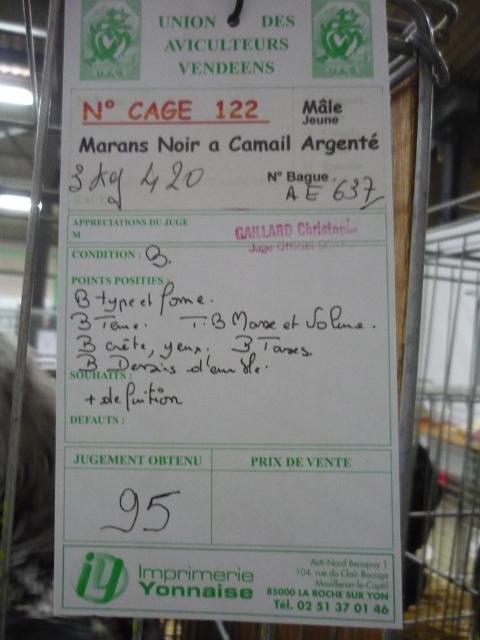 UNION DES
AVICULTEURS
VENDEENS
U.A.V. U.A.V.
N° CAGE 122 Mâle
Jeune
Marans Noir a Camail Argenté
3 kg 420 N° Bague
AE 637
APPRECIATIONS DU JUGE
M GAILLARD Christophe
Juge Officiel
CONDITION : B.
POINTS POSITIFS :
B type et forme.
B Tenue. T.B Masse et Volume.
B crête, yeux. B Tarses.
B Dessins d'ensble.
SOUHAITS :
+ definition
DEFAUTS :
JUGEMENT OBTENU PRIX DE VENTE
95
iy Imprimerie
Yonnaise
Acti-Nord Beaupuy 1
104, rue du Clair Bocage
Mouilleron-le-Captif
85000 LA ROCHE SUR YON
Tél. 02 51 37 01 46